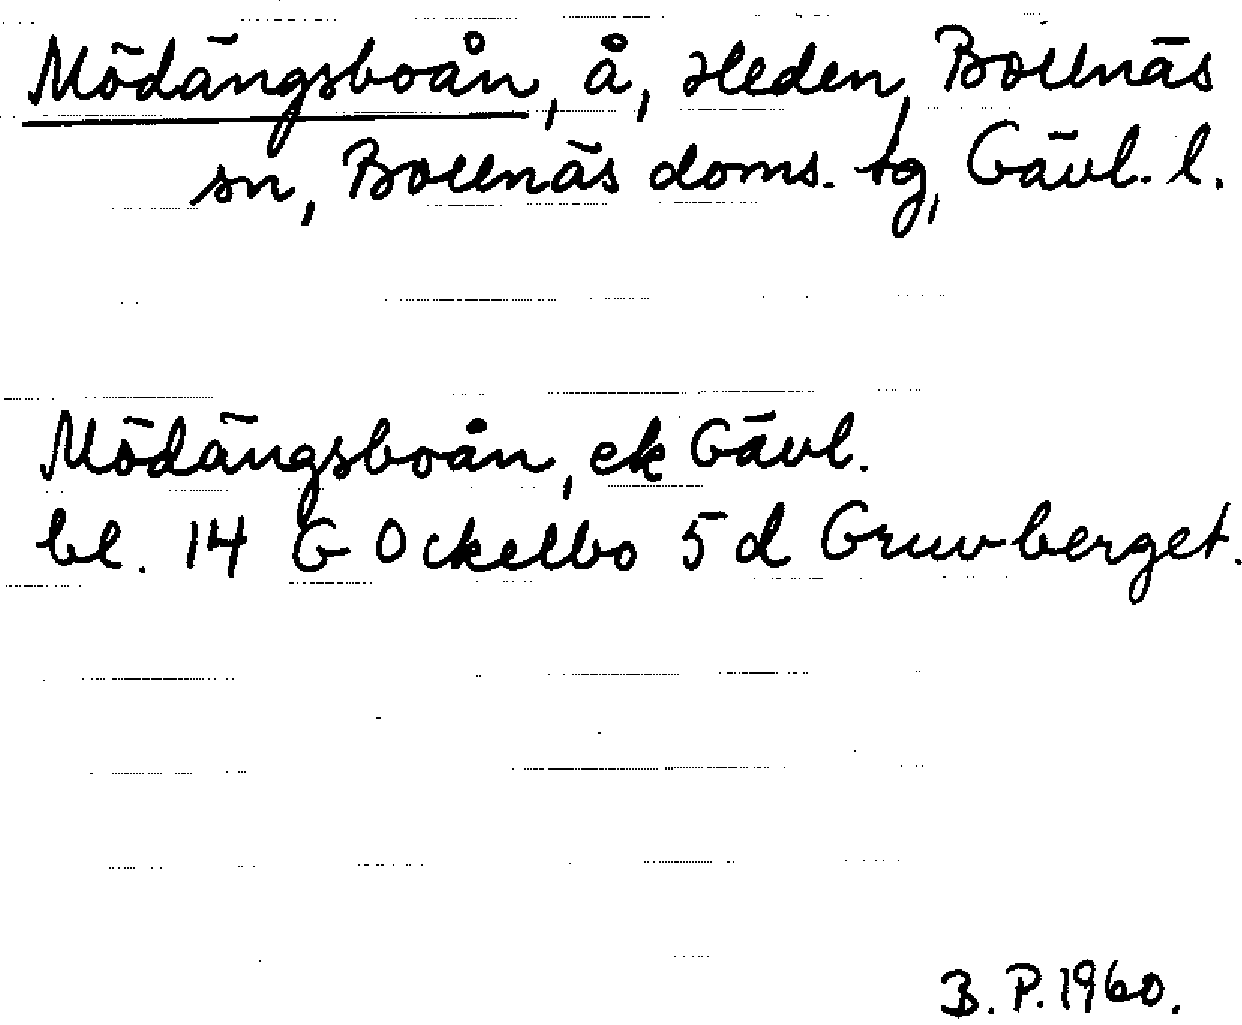 Mödängsboån, å, Heden, Bollnäs
sn, Bollnäs doms. tg, Gävl. l.
Mödängsboån, ek Gävl.
bl. 14 G Ockelbo 5 d Gruvberget.
B. P. 1960.